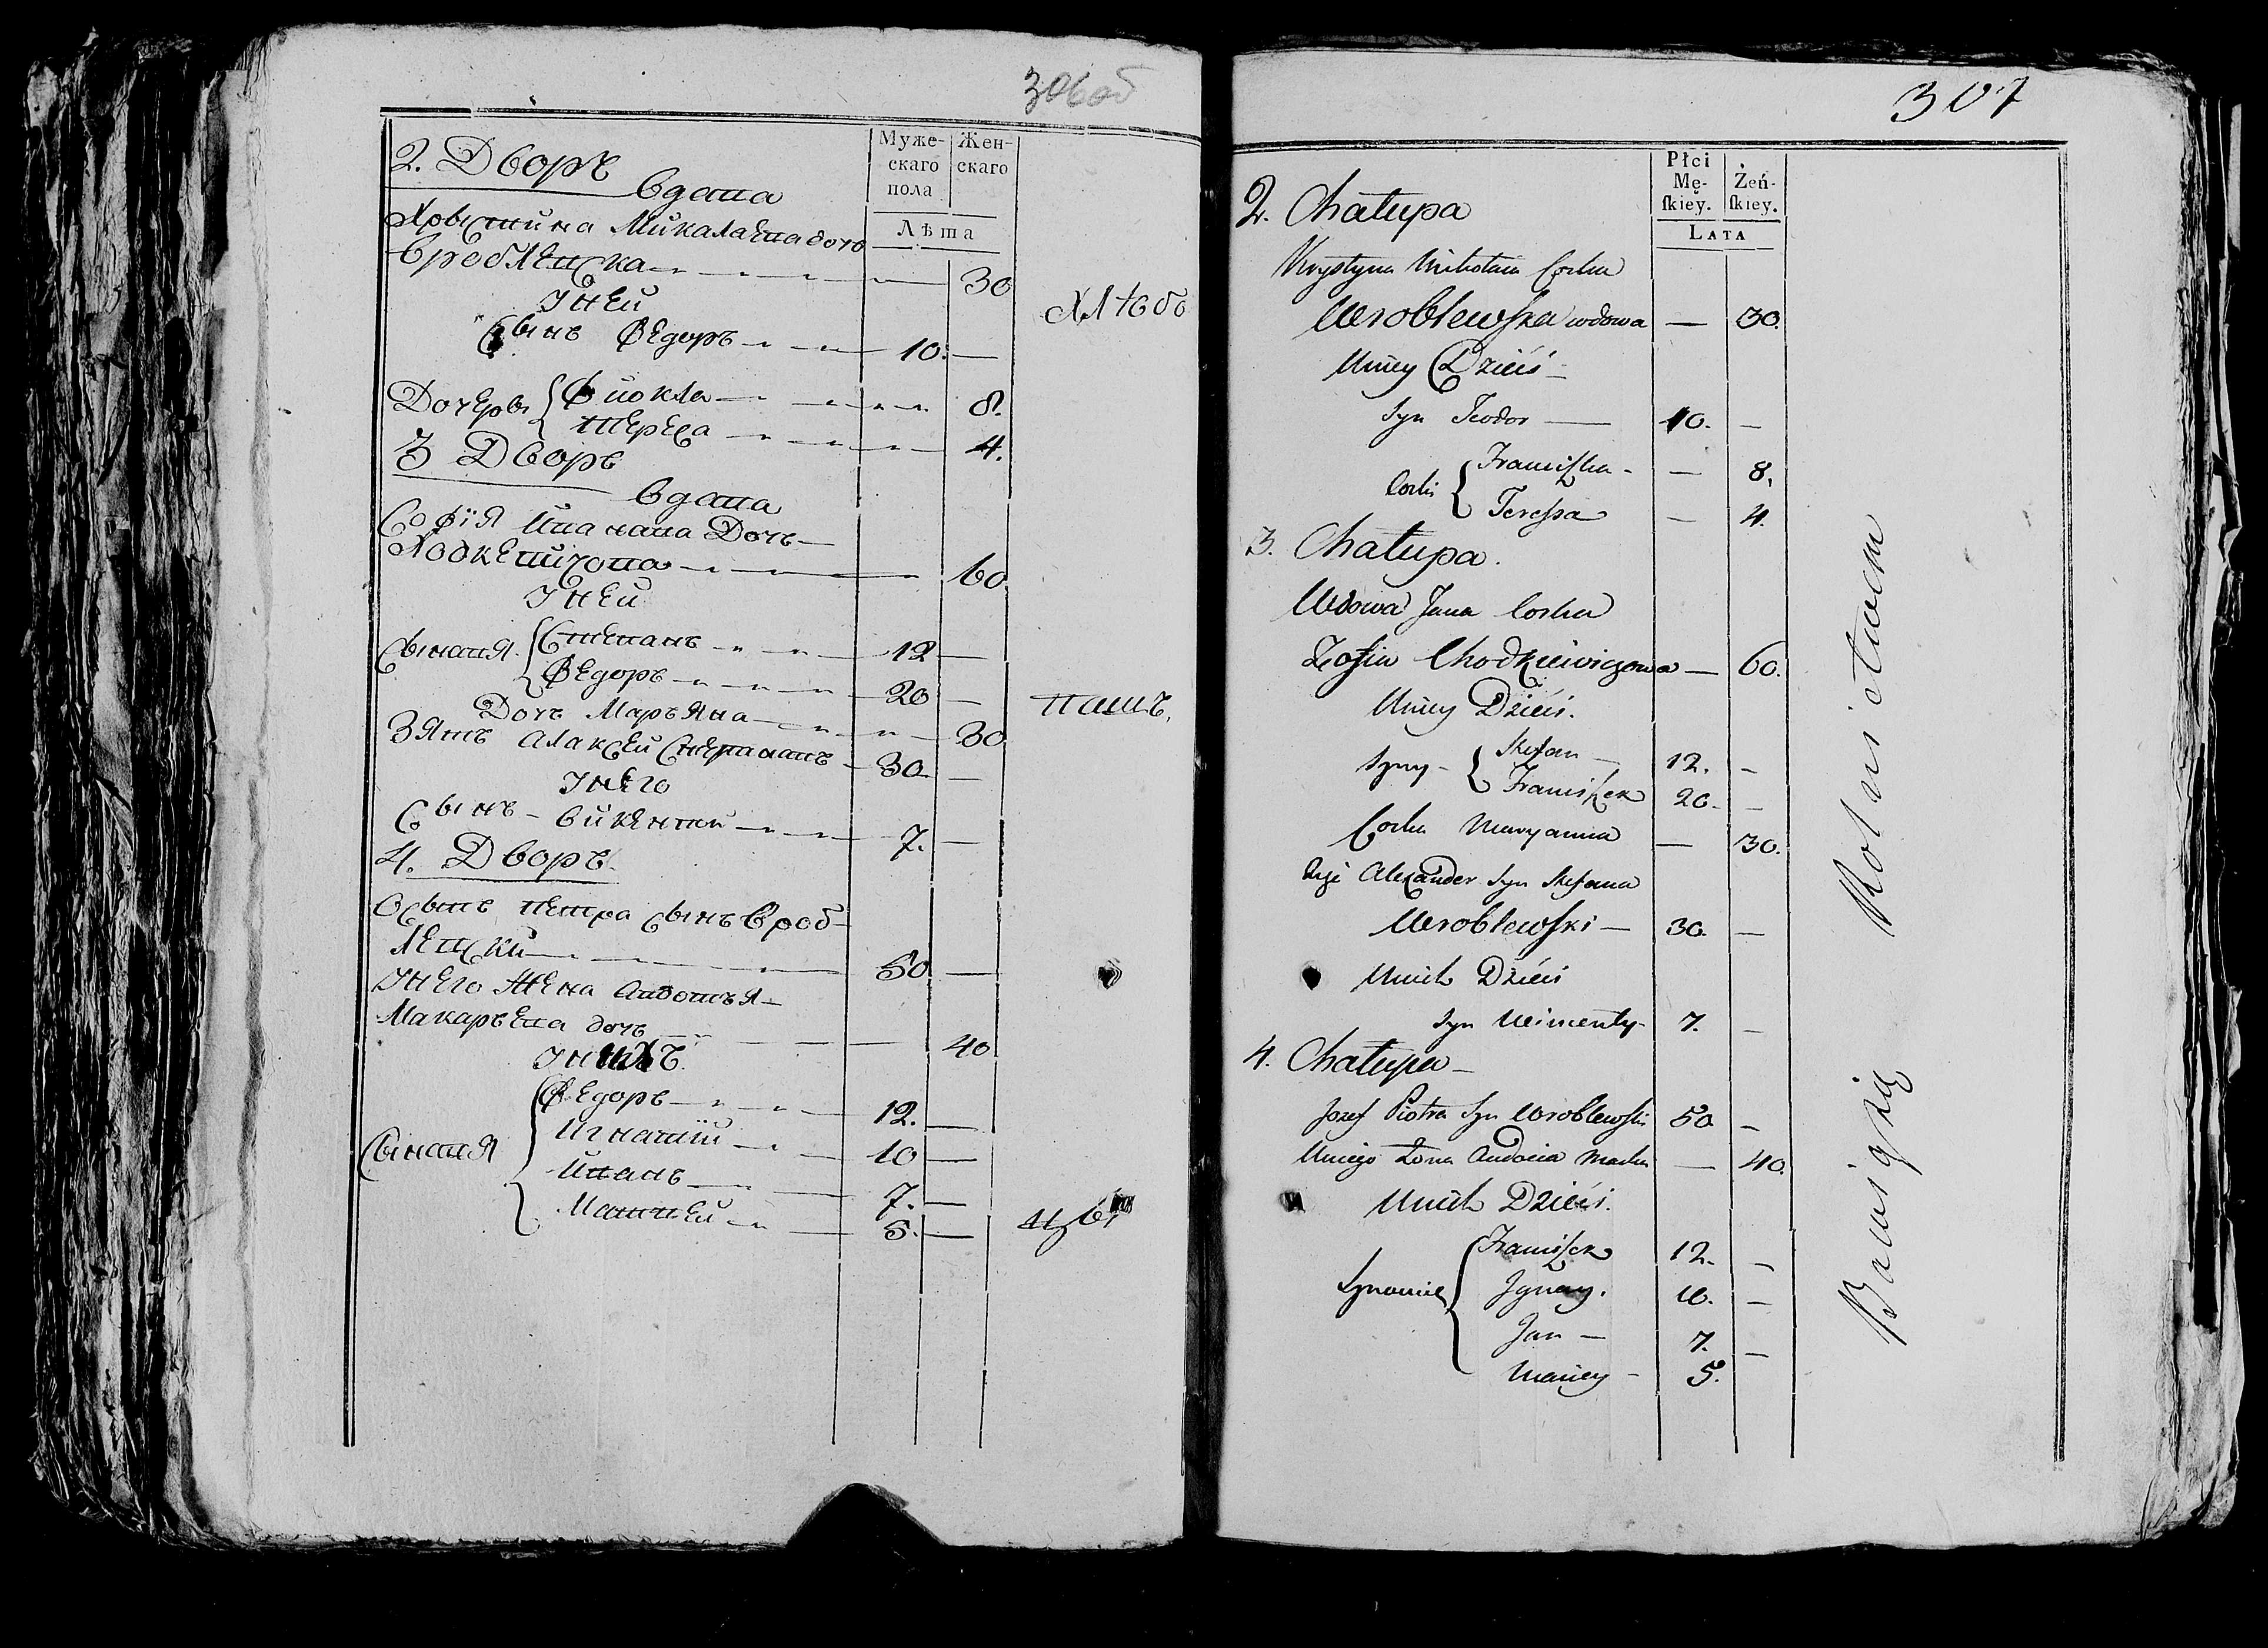 306об
Муже-
скаго
пола
Жен-
скаго
Лѣта
2. Дворъ
вдава
Хрыстина Микалаева дочъ
Вроблевска 30
Унеи
Сынъ Федоръ 10. —
Дочеры Фиокла 8.
Тереса 4.
3 Дворъ
вдава
Софія Ивanaва Дочъ
Ходкевичова 60.
Унеи
Сынавя Степанъ 12 —
Федоръ 20 —
Доч Марьяна 30
Зять Алаксеи 30. —
Унего
Сынъ Викентии 7. —
4. Дворъ
Осыпъ Петра Сынъ Вроб-
левски 50 —
Унего Жена Авдотья
Макарьева дочъ 40
Унихъ
Сынавя Федоръ 12. —
Игнатїи 10 —
Иванъ 7. —
Матвеи 5. —
Хлѣбо
паш.
307
Płci
Mę-
ſkiey.
Żeń-
ſkiey.
LATA
2. Chałupa
Krystyna Mikołaia Corka
Wroblewſka wdowa — 30.
Uniey Dzieći —
Syn Teodor — 10. —
Corki Franciſzka — 8.
Tereſsa — 4.
3. Chałupa.
Wdowa Jana Corka
Zofia Chodkiewiczowa — 60.
Uniey Dzieći.
Syny — Stefan — 12. —
Franciſzek 20. —
Corka Maryanna — 30.
Zięć Alexander Syn Stefana
Wroblewſki — 30. —
Unich Dzieći
Syn Wincenty — 7. —
4. Chałupa —
Jozef Piotra Syn Wroblewſki 50. —
Uniego Żona Audocia — 40.
Unich Dzieći.
Synowie Franciſzek 12. —
Jgnacy. 10. —
Jan — 7. —
Maciey — 5.
Bawią się Rolnictwem